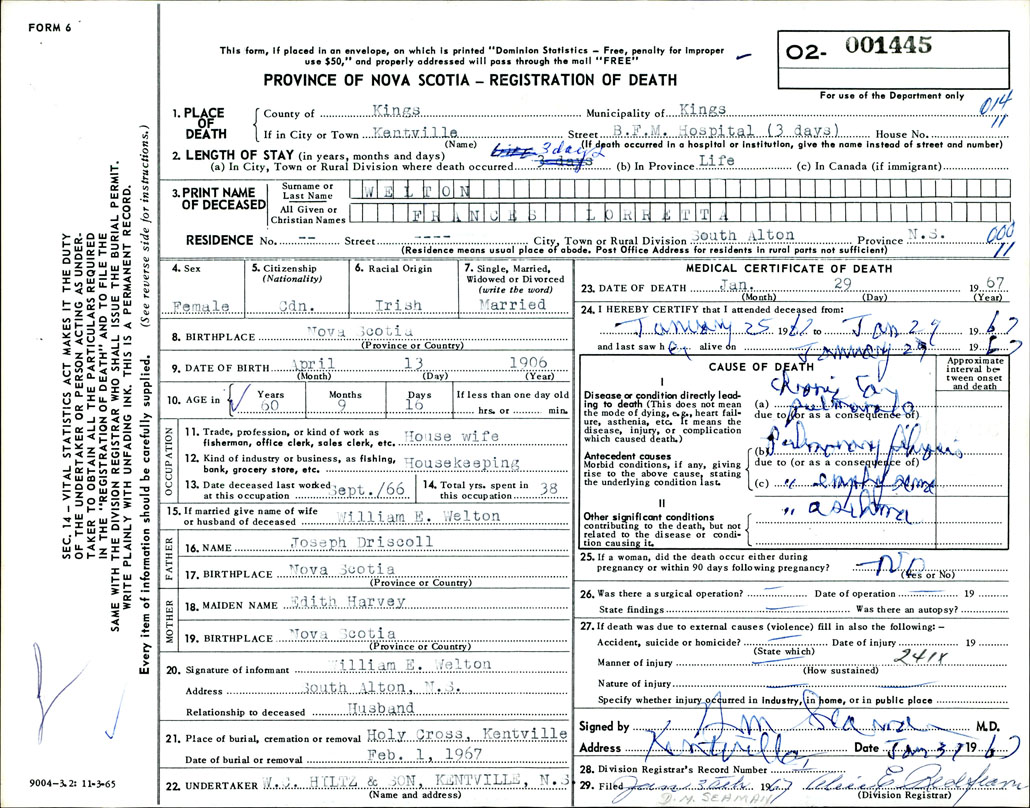 FORM 6
This form, if placed in an envelope, on which is printed "Dominion Statistics – Free, penalty for improper
use $50," and properly addressed will pass through the mail "FREE"
02- 001445
PROVINCE OF NOVA SCOTIA – REGISTRATION OF DEATH
For use of the Department only
014
11
1. PLACE OF DEATH
County of Kings Municipality of Kings
If in City or Town Kentville Street B.F.M. Hospital (3 days) House No.
(Name) (If death occurred in a hospital or institution, give the name instead of street and number)
2. LENGTH OF STAY (in years, months and days)
(a) In City, Town or Rural Division where death occurred 3 days 3 days (b) In Province Life (c) In Canada (if immigrant)
3. PRINT NAME OF DECEASED
Surname or Last Name WELTON
All Given or Christian Names FRANCES LORRETTA
RESIDENCE No. -- Street ---- City, Town or Rural Division South Alton Province N.S.
(Residence means usual place of abode. Post Office Address for residents in rural parts not sufficient)
000
11
4. Sex
Female
5. Citizenship
(Nationality)
Cdn.
6. Racial Origin
Irish
7. Single, Married,
Widowed or Divorced
(write the word)
Married
8. BIRTHPLACE Nova Scotia
(Province or Country)
9. DATE OF BIRTH April 13 1906
(Month) (Day) (Year)
10. AGE in Years Months Days If less than one day old
60 9 16 hrs. or min.
OCCUPATION
11. Trade, profession, or kind of work as House wife
fisherman, office clerk, sales clerk, etc.
12. Kind of industry or business, as fishing, Housekeeping
bank, grocery store, etc.
13. Date deceased last worked at this occupation Sept./66
14. Total yrs. spent in this occupation 38
15. If married give name of wife
or husband of deceased William E. Welton
FATHER
16. NAME Joseph Driscoll
17. BIRTHPLACE Nova Scotia
(Province or Country)
MOTHER
18. MAIDEN NAME Edith Harvey
19. BIRTHPLACE Nova Scotia
(Province or Country)
20. Signature of informant William E. Welton
Address South Alton, N.S.
Relationship to deceased Husband
21. Place of burial, cremation or removal Holy Cross, Kentville
Date of burial or removal Feb. 1, 1967
22. UNDERTAKER W.C. HILTZ & SON, KENTVILLE, N.S.
(Name and address)
MEDICAL CERTIFICATE OF DEATH
23. DATE OF DEATH Jan. 29 1967
(Month) (Day) (Year)
24. I HEREBY CERTIFY that I attended deceased from:
January 25 1967 to Jan 29 1967
and last saw her alive on January 29 1967
CAUSE OF DEATH
Approximate
interval be-
tween onset
and death
I
Disease or condition directly lead-
ing to death (This does not mean
the mode of dying, e.g., heart fail-
ure, asthenia, etc. It means the
disease, injury, or complication
which caused death.)
(a) Chronic pulmonale
due to (or as a consequence of)
Antecedent causes
Morbid conditions, if any, giving
rise to the above cause, stating
the underlying condition last.
(b) Pulmonary
due to (or as a consequence of)
(c) " emphysema
II
" asthma
Other significant conditions
contributing to the death, but not
related to the disease or condi-
tion causing it.
25. If a woman, did the death occur either during
pregnancy or within 90 days following pregnancy? No
(Yes or No)
26. Was there a surgical operation? Date of operation 19
State findings Was there an autopsy?
27. If death was due to external causes (violence) fill in also the following: –
Accident, suicide or homicide? Date of injury 19
(State which)
Manner of injury 241X
(How sustained)
Nature of injury
Specify whether injury occurred in Industry, in home, or in public place
Signed by Seaman M.D.
Address Kentville Date Jan 31 1967
28. Division Registrar's Record Number
29. Filed Jan 30th 1967
(Division Registrar)
D.M. SEAMAN
SEC. 14 – VITAL STATISTICS ACT MAKES IT THE DUTY
OF THE UNDERTAKER OR PERSON ACTING AS UNDER-
TAKER TO OBTAIN ALL THE PARTICULARS REQUIRED
IN THE "REGISTRATION OF DEATH" AND TO FILE THE
SAME WITH THE DIVISION REGISTRAR WHO SHALL ISSUE THE BURIAL PERMIT.
WRITE PLAINLY WITH UNFADING INK. THIS IS A PERMANENT RECORD.
Every item of information should be carefully supplied. (See reverse side for instructions.)
9004-3.2: 11-3-65